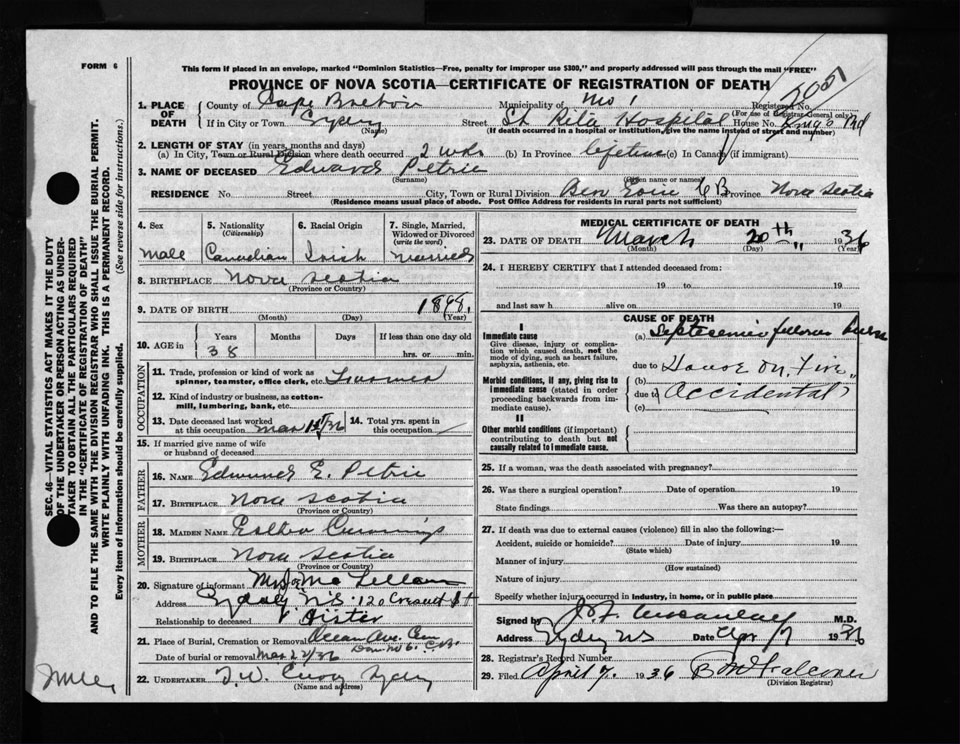 FORM 6
This form if placed in an envelope, marked "Dominion Statistics—Free, penalty for improper use $300," and properly addressed will pass through the mail "FREE"
PROVINCE OF NOVA SCOTIA—CERTIFICATE OF REGISTRATION OF DEATH
1. PLACE OF DEATH
County of Cape Breton Municipality of Registered No.
(For use of Registrar General only)
If in City or Town Sydney (Name) Street St Rita Hospital House No. Kings Rd
(If death occurred in a hospital or institution, give the name instead of street and number)
2. LENGTH OF STAY (in years, months and days)
(a) In City, Town or Rural Division where death occurred 2 wks (b) In Province lifetime (c) In Canada (if immigrant)
3. NAME OF DECEASED Edward Petrie
(Surname) (Given name or names)
RESIDENCE No. Street City, Town or Rural Division Ben Eoin C B Province Nova Scotia
(Residence means usual place of abode. Post Office Address for residents in rural parts not sufficient)
4. Sex
Male
5. Nationality
(Citizenship)
Canadian
6. Racial Origin
Irish
7. Single, Married, Widowed or Divorced
(write the word)
Married
8. BIRTHPLACE Nova Scotia
(Province or Country)
9. DATE OF BIRTH 1898.
(Month) (Day) (Year)
10. AGE in Years Months Days If less than one day old
38 hrs. or min.
OCCUPATION
11. Trade, profession or kind of work as spinner, teamster, office clerk, etc.
12. Kind of industry or business, as cotton-mill, lumbering, bank, etc.
13. Date deceased last worked at this occupation Mar 1st/36
14. Total yrs. spent in this occupation
15. If married give name of wife or husband of deceased
FATHER
16. NAME Edmund E. Petrie
17. BIRTHPLACE Nova Scotia
(Province or Country)
MOTHER
18. MAIDEN NAME Cummings
19. BIRTHPLACE Nova Scotia
(Province or Country)
20. Signature of informant McLellan
Address Sydney N.S. 120 St
Relationship to deceased Sister
21. Place of Burial, Cremation or Removal Ocean Ave. Cem
C.B.
Date of burial or removal Mar 22/36
22. UNDERTAKER T.W. Curry Sydney
(Name and address)
MEDICAL CERTIFICATE OF DEATH
23. DATE OF DEATH March 20th 1936
(Month) (Day) (Year)
24. I HEREBY CERTIFY that I attended deceased from:
19 to 19
and last saw h alive on 19
CAUSE OF DEATH
I
Immediate cause
Give disease, injury or complication which caused death, not the mode of dying, such as heart failure, asphyxia, asthenia, etc.
(a) Septicemia following burns
due to House on Fire
Morbid conditions, if any, giving rise to immediate cause (stated in order proceeding backwards from immediate cause.
(b)
due to Accidental
(c)
II
Other morbid conditions (if important) contributing to death but not causally related to immediate cause.
25. If a woman, was the death associated with pregnancy?
26. Was there a surgical operation? Date of operation 19
State findings Was there an autopsy?
27. If death was due to external causes (violence) fill in also the following:—
Accident, suicide or homicide? Date of injury 19
(State which)
Manner of injury
(How sustained)
Nature of injury
Specify whether injury occurred in industry, in home, or in public place
Signed by M.D.
Address Sydney NS Date Apr 7 1936
28. Registrar's Record Number
29. Filed April 7. 1936
(Division Registrar)
SEC. 46—VITAL STATISTICS ACT MAKES IT THE DUTY
OF THE UNDERTAKER OR PERSON ACTING AS UNDER-
TAKER TO OBTAIN ALL THE PARTICULARS REQUIRED
IN THE "CERTIFICATE OF REGISTRATION OF DEATH"
AND TO FILE THE SAME WITH THE DIVISION REGISTRAR WHO SHALL ISSUE THE BURIAL PERMIT.
WRITE PLAINLY WITH UNFADING INK. THIS IS A PERMANENT RECORD.
Every item of information should be carefully supplied. (See reverse side for instructions.)